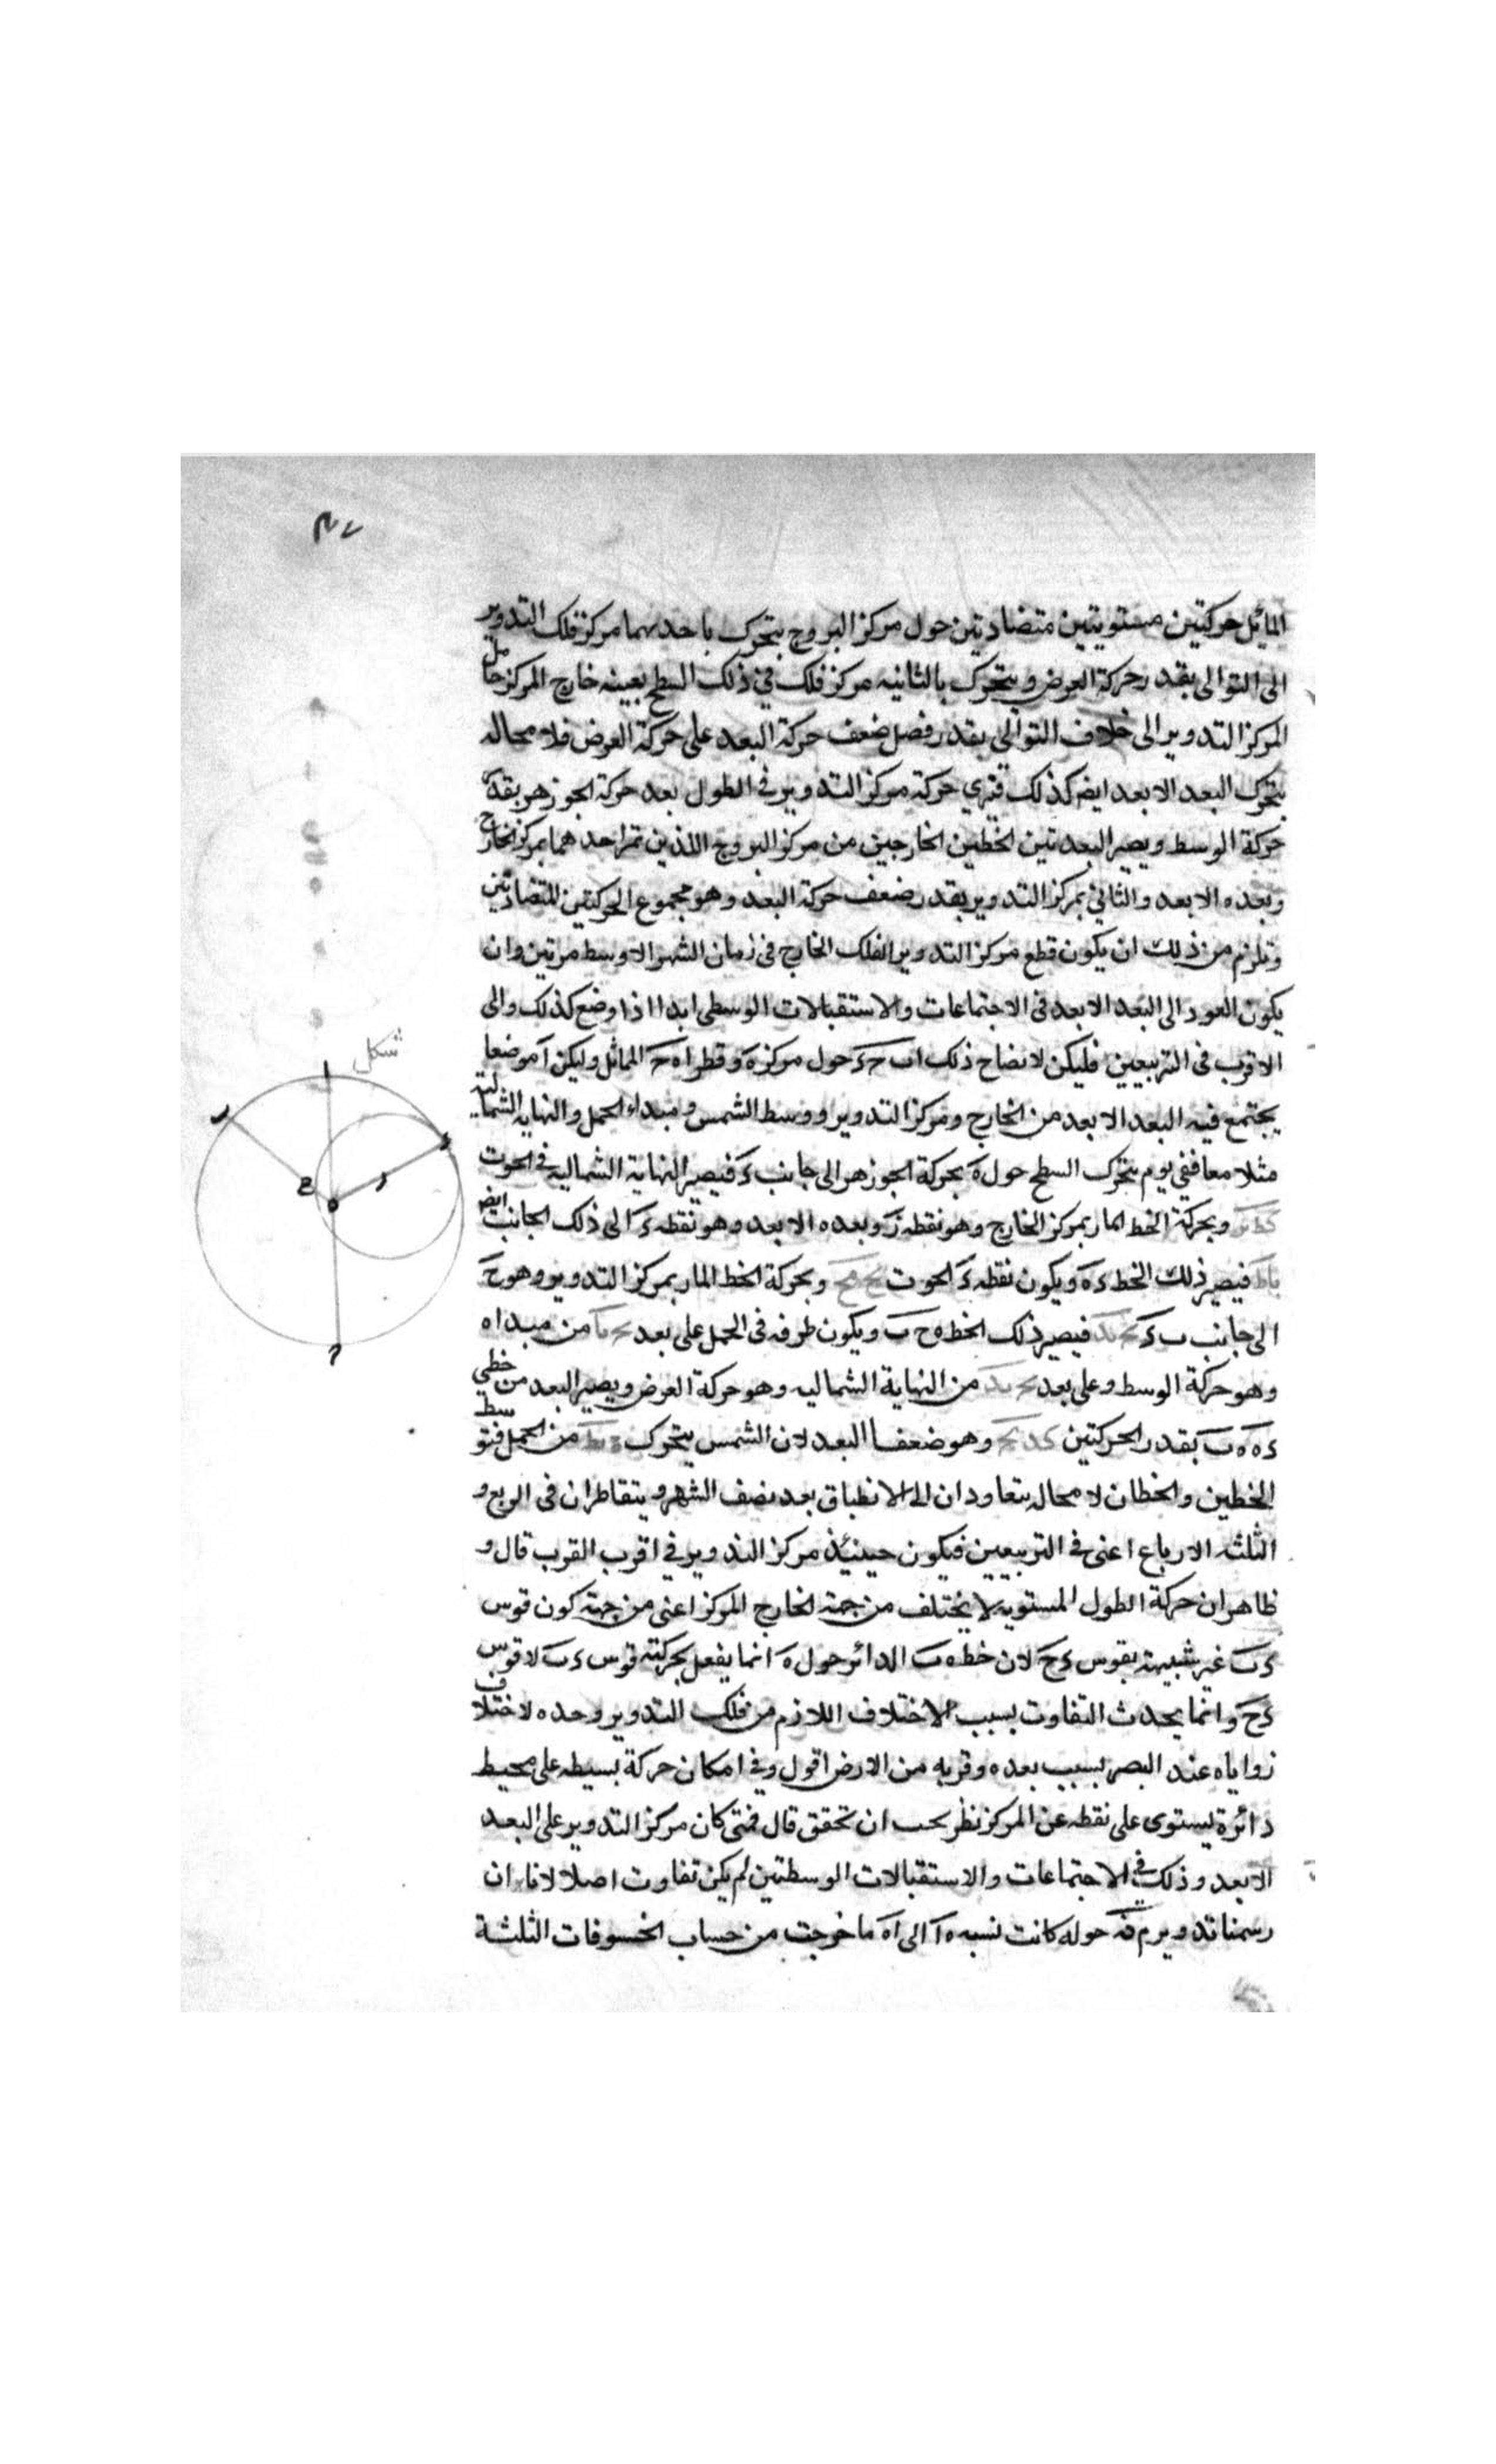 المائل حركتين مستويتين متضادتين حول مركز البروج يتحرك باحديهما مركز فلك التدوير
الى التوالى بقدر حركة العرض ويتحرك بالثانيه مركز فلك في ذلك السطح بعينه خارج المركز حامل
المركز التدوير الى خلاف التوالى بقدر فصل ضعف حركة البعد على حركة العرض فلا محاله
يتحرك البعد الابعد ايضا كذلك فيرى حركة مركز التدوير فى الطول بعد حركة الجوزهر بقدر
حركة الوسط ويصير البعد بين الخطين الخارجين من مركز البروج اللذين تمر احدهما بمركز الخارج
وبعده الابعد والثاني بمركز التدوير بقدر ضعف حركة البعد وهو مجموع الحركتين المتضادتين
ويلزم من ذلك ان يكون قطع مركز التدوير الفلك الخارج فى زمان الشهر الاوسط مرتين وان
يكون العود الى البعد الابعد فى الاجتماعات والاستقبالات الوسطى ابدا اذا وضع كذلك والى
الاقرب فى التربيعين فليكن لايضاح ذلك اب حء حول مركز ه وقطر اه ح المائل وليكن ا موضعا
شكل
يجتمع فيه البعد الابعد من الخارج ومركز التدوير ووسط الشمس ومبداء الحمل والنهايه الشماليه
مثلا معا ففي يوم يتحرك السطح حول ه بحركة الجوزهر الى جانب ء فيصير النهاية الشماليه فى الحوت
وبحركة الخط المار بمركز الخارج وهو نقطه ز وبعده الابعد وهو نقطه ء الى ذلك الجانب ايضا
فيصير ذلك الخط ءه ويكون نقطه ء الحوت وبحركة الخط المار بمركز التدوير وهو ح
الى جانب ب ء فيصير ذلك الخط ه ح ب ويكون طرفه فى الحمل على بعد من مبداه
وهو حركة الوسط وعلى بعد من النهاية الشماليه وهو حركة العرض ويصير البعد من خطي
ءه ه ب بقدر الحركتين وهو ضعفا البعد لان الشمس يتحرك من الحمل فتوسط
الخطين والخطان لا محاله يتعاودان الى الانطباق بعد نصف الشهر ويتقاطران فى الربع و
الثلثه الارباع اعنى فى التربيعين فيكون حينئذ مركز التدوير في اقرب القرب قال و
ظاهر ان حركة الطول المستويه لا يختلف من جهة الخارج المركز اعنى من جهة كون قوس
ءب غير شبيهة بقوس ءح لان خط ه ب الدائر حول ه انما يفعل بحركته قوس ءب لا قوس
ءح وانما يحدث التفاوت بسبب الاختلاف اللازم من فلك التدوير وحده لاختلاف
زواياه عند البصر بسبب بعده وقربه من الارض اقول وفى امكان حركة بسيطه على محيط
دائرة ليستوى على نقطه عن المركز نظر يجب ان تحقق قال فمتى كان مركز التدوير على البعد
الابعد وذلك في الاجتماعات والاستقبالات الوسطتين لم يكن تفاوت اصلا لانا ان
رسمنا تدوير م حوله كانت نسبه ه ا الى ا ما خرجت من حساب الخسوفات الثلثة